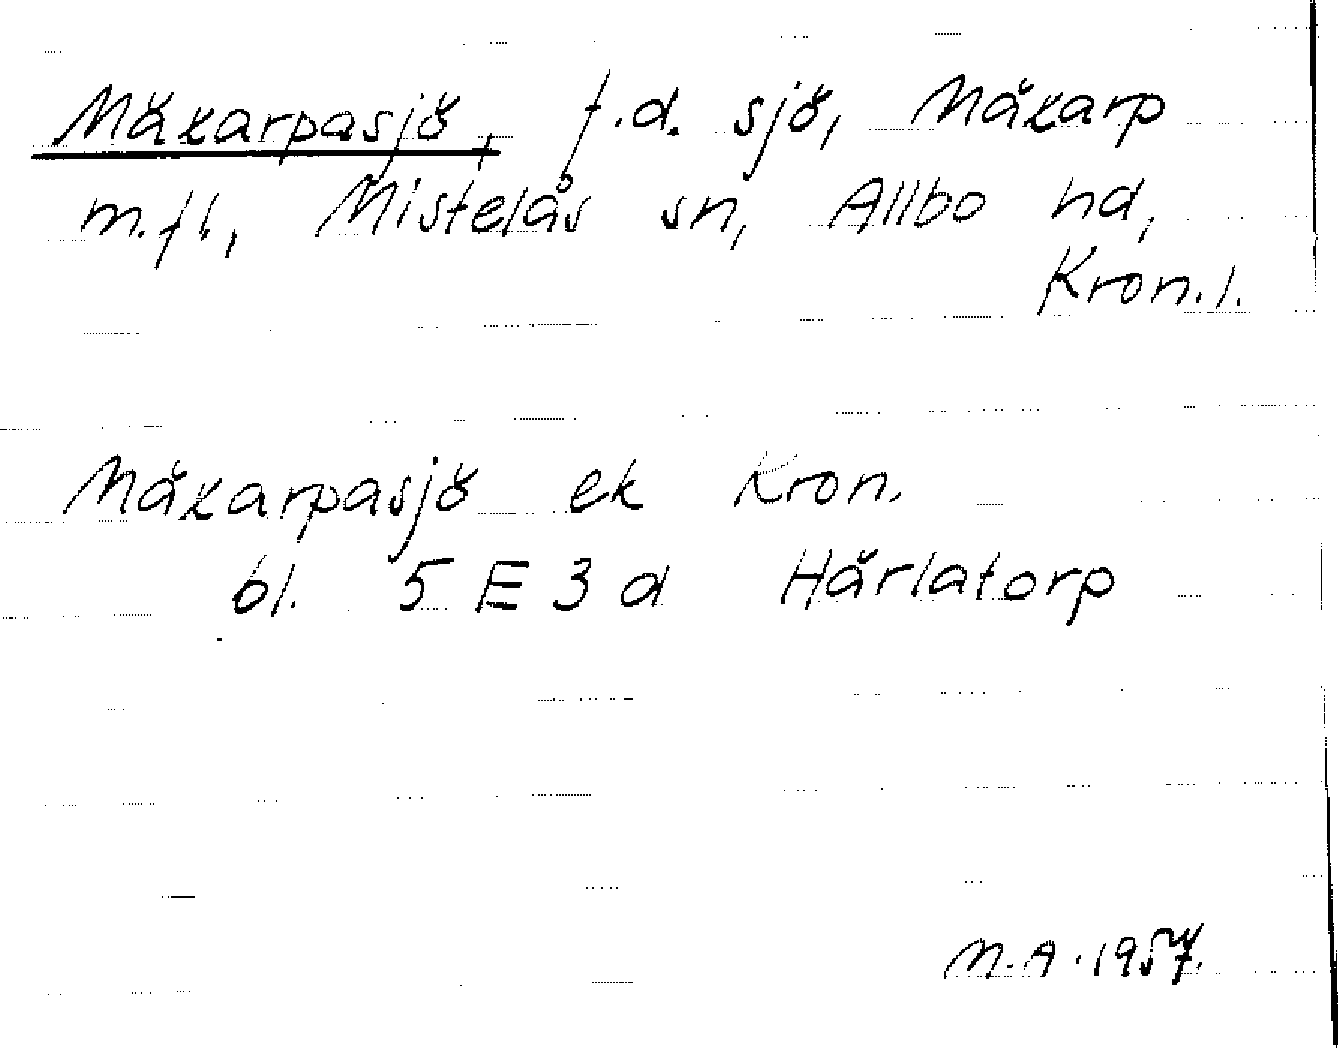 Mäkarpasjö, f.d. sjö, Mäkarp
m.fl., Mistelås sn, Allbo hd,
Kron.l.
Mäkarpasjö ek Kron.
bl. 5 E 3 d Härlatorp
M.A. 1957.